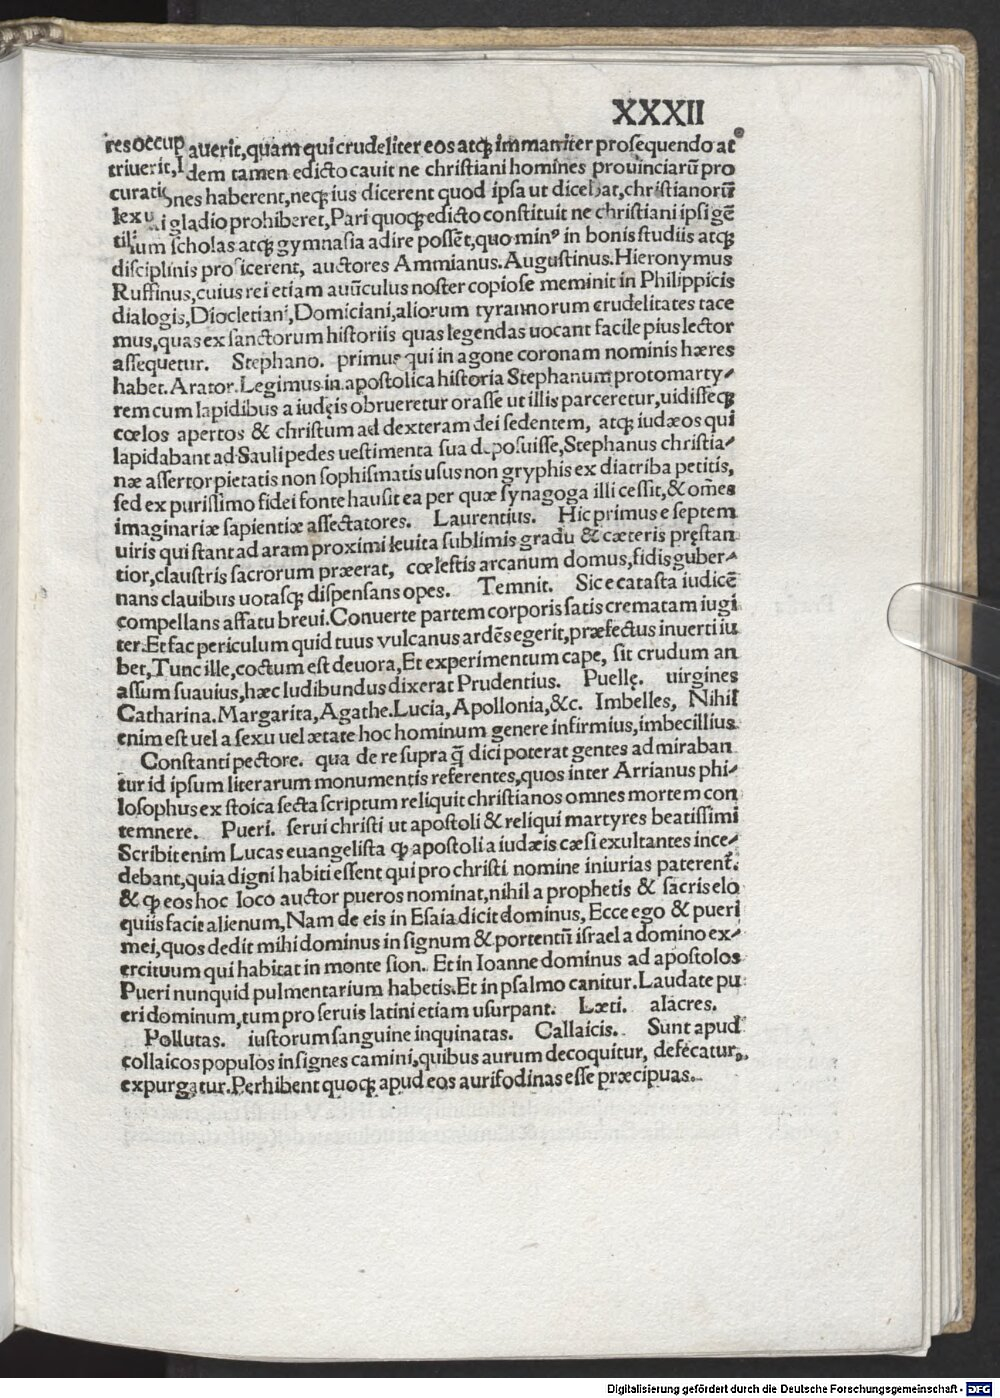 XXXII
res occup auerit, quam qui crudeliter eos atq; immaniter prosequendo at
triuerit, I dem tamen edicto cauit ne christiani homines prouinciarū pro
curatiōnes haberent, neq; ius dicerent quod ipsa ut dicebat, christianorū
lex u i gladio prohiberet, Pari quoq; edicto constituit ne christiani ipsi gē
tilium scholas atq; gymnasia adire possēt, quo minꝰ in bonis studiis atq;
disciplinis proficerent, auctores Ammianus. Augustinus. Hieronymus
Ruffinus, cuius rei etiam auūculus noster copiose meminit in Philippicis
dialogis, Diocletiani, Domiciani, aliorum tyrannorum crudelitates tace
mus, quas ex sanctorum historiis quas legendas uocant facile pius lector
assequetur. Stephano. primus qui in agone coronam nominis hæres
habet. Arator. Legimus in apostolica historia Stephanum protomarty-
rem cum lapidibus a iudęis obrueretur orasse ut illis parceretur, uidisseq;
cœlos apertos & christum ad dexteram dei sedentem, atq; iudæos qui
lapidabant ad Sauli pedes uestimenta sua deposuisse, Stephanus christia-
næ assertor pietatis non sophismatis usus non gryphis ex diatriba petitis,
sed ex purissimo fidei fonte hausit ea per quæ synagoga illi cessit, & om̄es
imaginariæ sapientiæ assectatores. Laurentius. Hic primus e septem
uiris qui stant ad aram proximi leuita sublimis gradu & cæteris pręstan
tior, claustris sacrorum præerat, cœlestis arcanum domus, fidis guber-
nans clauibus uotasq; dispensans opes. Temnit. Sic e catasta iudicē
compellans affatu breui. Conuerte partem corporis satis crematam iugi
ter. Et fac periculum quid tuus vulcanus ardēs egerit, præfectus inuerti iu
bet, Tunc ille, coctum est deuora, Et experimentum cape, sit crudum an
assum suauius, hæc ludibundus dixerat Prudentius. Puellę. uirgines
Catharina. Margarita, Agathe. Lucia, Apollonia, &c. Imbelles, Nihil
enim est uel a sexu uel ætate hoc hominum genere infirmius, imbecillius.
Constanti pectore. qua de re supra q̄ dici poterat gentes admiraban
tur id ipsum literarum monumentis referentes, quos inter Arrianus phi-
losophus ex stoica secta scriptum reliquit christianos omnes mortem con
temnere. Pueri. serui christi ut apostoli & reliqui martyres beatissimi
Scribit enim Lucas euangelista ꝙ apostoli a iudæis cæsi exultantes ince-
debant, quia digni habiti essent qui pro christi nomine iniurias paterent̄.
& ꝙ eos hoc loco auctor pueros nominat, nihil a prophetis & sacris elo
quiis facit alienum, Nam de eis in Esaia dicit dominus, Ecce ego & pueri
mei, quos dedit mihi dominus in signum & portentū israel a domino ex-
ercituum qui habitat in monte sion. Et in Ioanne dominus ad apostolos
Pueri nunquid pulmentarium habetis. Et in psalmo canitur. Laudate pu
eri dominum, tum pro seruis latini etiam usurpant. Læti. alacres.
Pollutas. iustorum sanguine inquinatas. Callaicis. Sunt apud
collaicos populos insignes camini, quibus aurum decoquitur, defecatur,
expurgatur. Perhibent quoq; apud eos aurifodinas esse præcipuas.
Digitalisierung gefördert durch die Deutsche Forschungsgemeinschaft - DFG